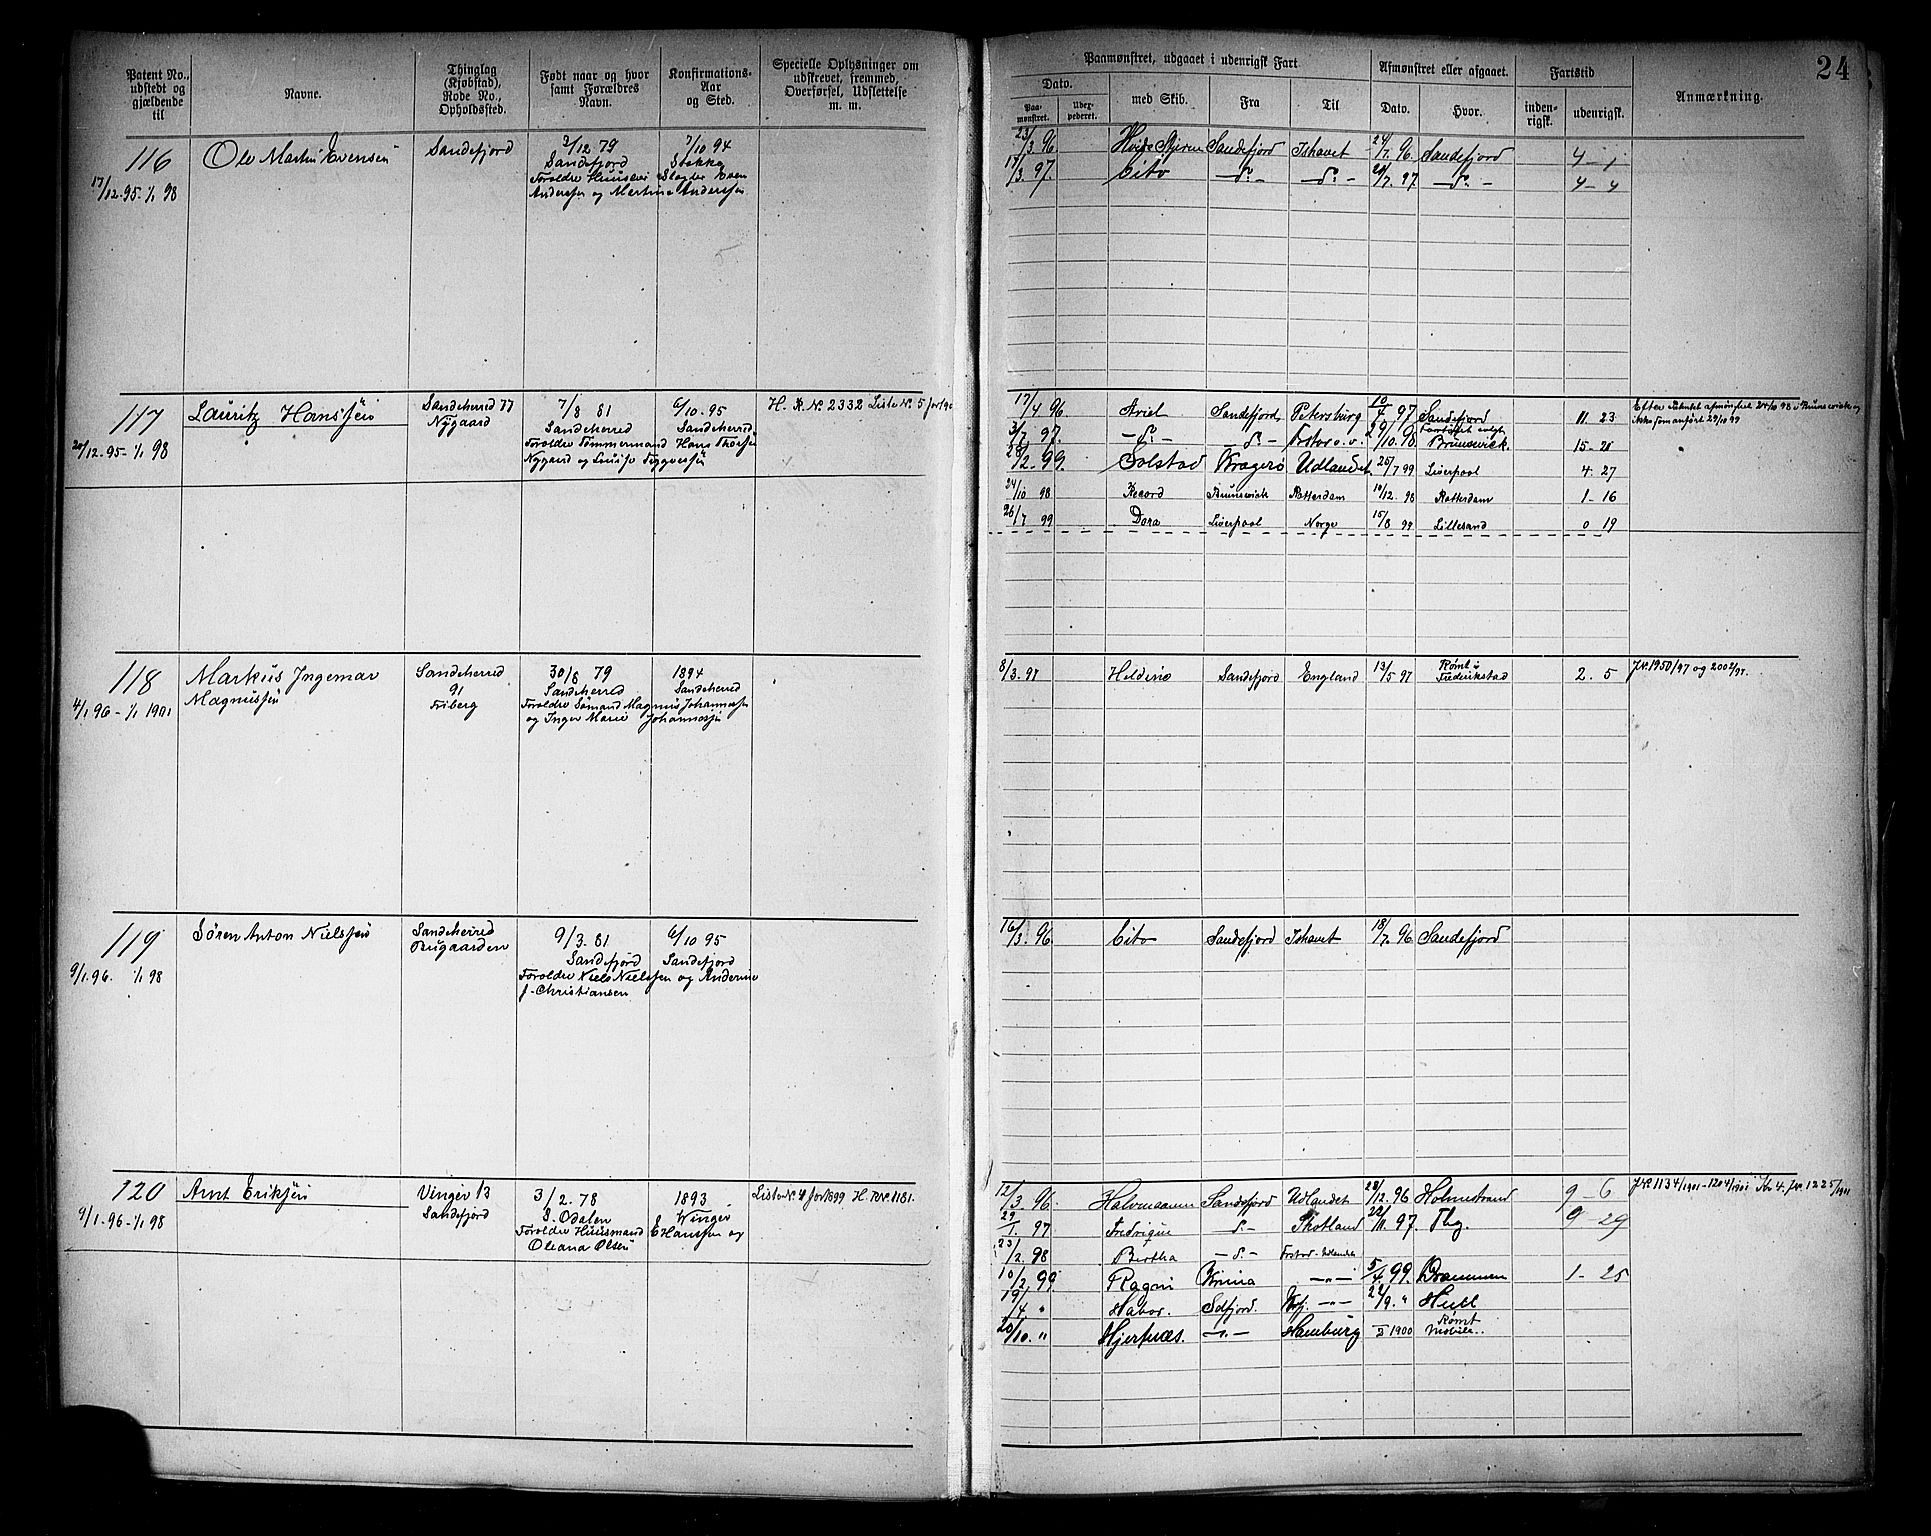 Patent No., udstedt og gjældende til
Navne.
Thinglag (Kjøbstad), Rode No., Opholdssted.
Født naar og hvor samt Forældres Navn.
Konfirmations-Aar og Sted.
Specielle Oplysninger om udskrevet, fremmed, Overførsel, Udslettelse m. m.
116
17/12-95-1/1 98
Ole Martin Evensen
Sandefjord
2/12 79
Sandefjord
Foroldre Huusein Slagter Even
Anderssen og Martine Anderssen
7/10 94
Stokke
117
20/12-95-1/1 98
Lauritz Hanssen
Sandeherred 77
Nygaard
7/8 81
Sandeherred
Foroldre Tømmermand Hans Thorsen
Nygaard og
6/10-95
Sandeherred
H. R. No. 2332 Liste No. 5 for
118
4/1 96-1/1 1901
Markus Ingemar
Magnussen
Sandeherred
91
Friberg
30/8 79
Sandeherred
Foroldre Sømand Magnus Johannessen
og Inger Marie Johannessen
1894
Sandeherred
119
9/1-96. 1/1 98
Søren Anton Nielssen
Sandeherred
Bugaarden
9/3. 81
Sandefjord
Foroldre Niels Nielssen og Anderine
J. Christiansen
6/10 95
Sandefjord
120
9/1-96-1/1 98
Arnt Erikssen
Vinger 13
Sandefjord
3/2. 78
S. Odalen
Foroldre Huusmand E Hanssen og
Oleana Olsen
1893
Vinger
Liste No. 4 for 1899 H. R No. 1181.
24
Paamønstret, udgaaet i udenrigsk Fart.
Afmønstret eller afgaaet.
Fartstid
Anmærkning.
Dato.
Paamønstret.
Udexpederet.
med Skib.
Fra
Til
Dato.
Hvor.
indenrigsk.
udenrigsk.
23/3. 96 Hvide Stjerne Sandefjord Ishavet 24/7. 96. Sandefjord 4-1
17/3. 97. Cito -do- -do- 20/7. 97 -do- 4-4
17/4 96. Ariel Sandefjord Petersburg 10/4 97 Sandefjord 11. 23
3/7. 97. -do- -do- 24/10. 98 Brunswick. 15-21
28/2. 99. Solstad Kragerø Udlandet 25/7 99 Liverpool 4. 27
24/10 98 Record Brunswick Rotterdam 10/12. 98 Rotterdam 1-16
26/7 99 Dora Liverpool Norge 15/8 99 Lillesand 0 19
8/3. 97 Sandefjord England 13/5 97 Rømt i Frederikstad 2. 5 J No. 1950/97 og 2002/97.
16/3. 96. Cito Sandefjord Ishavet 18/7. 96 Sandefjord
12/3. 96. Halvmaanen Sandefjord Udlandet 22/12. 96 Holmestrand 9-6 J No. 1134/1901-1204/1901 Kr 4. J No. 1225/1901
29/1. 97 -do- Skotland 22/11. 97. Tbg. 9-29
23/2. 98 Bertha -do-
10/2. 99. Ragni -"- 5/4. 99. Drammen 1-25
19/4 " Habor. Sdfjord. -"- 22/9. " Hull
20/10. " Hjertnæs. -"- Hamburg 1900 Rømt Mobile.